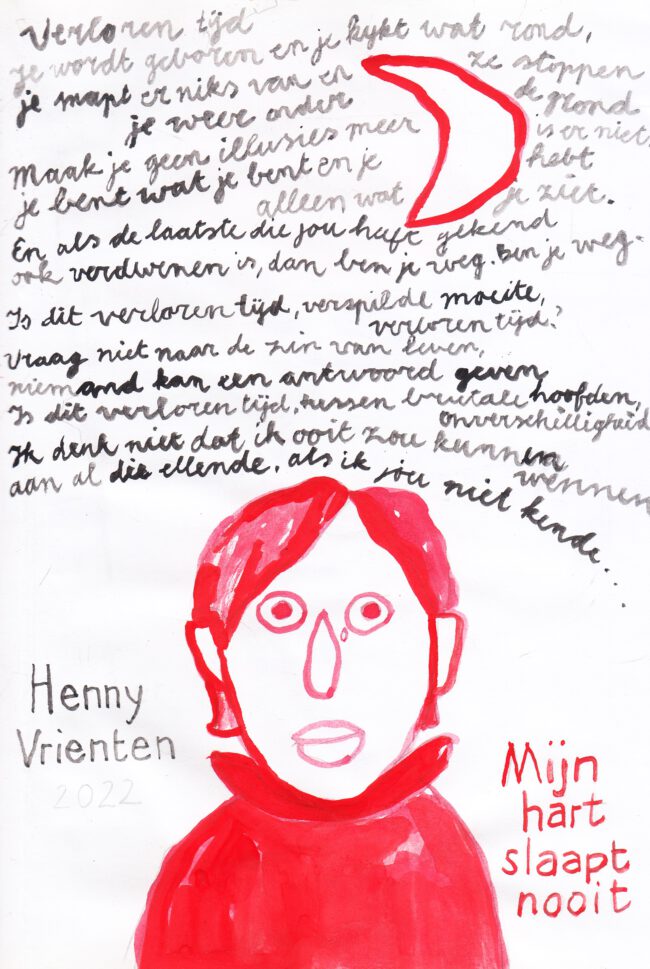 Verloren tijd
je wordt geboren en je kijkt wat rond,
je snapt er niks van en ze stoppen
je weer onder de grond
Maak je geen illusies meer is er niet,
je bent wat je bent en je hebt
alleen wat je ziet.
En als de laatste die jou heeft gekend
ook verdwenen is, dan ben je weg. Ben je weg.
Is dit verloren tijd, verspilde moeite,
verloren tijd?
Vraag niet naar de zin van leven,
niemand kan een antwoord geven
Is dit verloren tijd, tussen brutale hoofden,
onverschilligheid
Ik denk niet dat ik ooit zou kunnen
wennen
aan al die ellende, als ik jou niet kende...
Henny
Vrienten
2022
Mijn
hart
slaapt
nooit